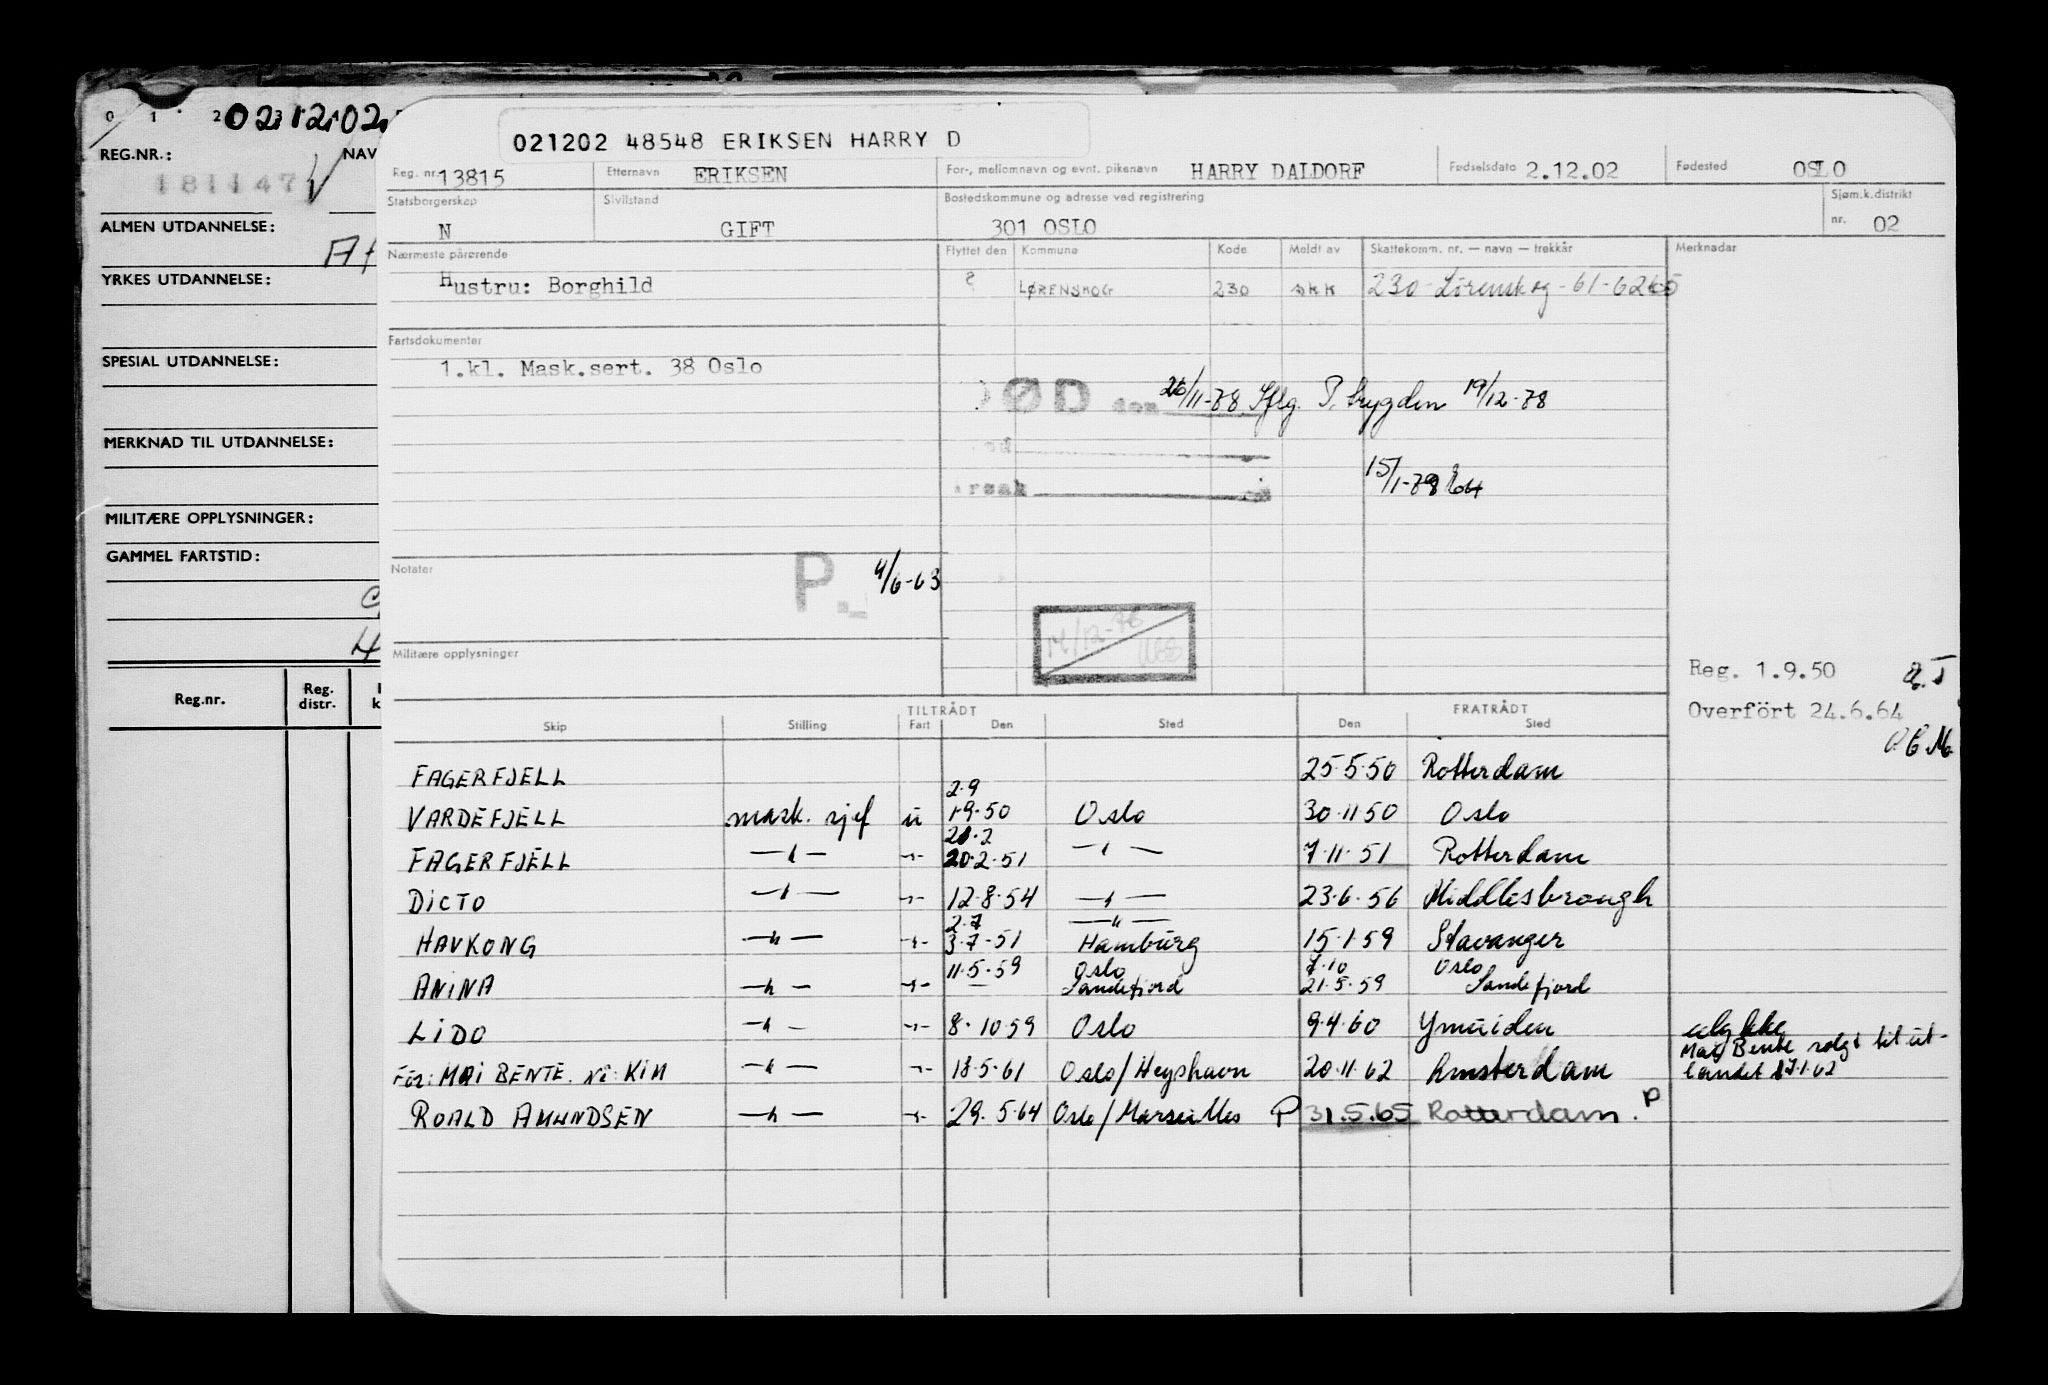 0 1 2 021202
REG.NR.: NAV
181147
ALMEN UTDANNELSE:
YRKES UTDANNELSE:
SPESIAL UTDANNELSE:
MERKNAD TIL UTDANNELSE:
MILITÆRE OPPLYSNINGER:
GAMMEL FARTSTID:
Reg.nr. Reg. distr.
021202 48548 ERIKSEN HARRY D
Reg. nr. 13815 Etternavn ERIKSEN For-, mellomnavn og evnt. pikenavn HARRY DALDORF Fødselsdato 2.12.02 Fødested OSLO
Statsborgerskap N Sivilstand GIFT Bostedskommune og adresse ved registrering 301 OSLO Sjøm.k.distrikt nr. 02
Nærmeste pårørende Flyttet den Kommune Kode Meldt av Skattekomm. nr. — navn — trekkår Merknadar
Hustru: Borghild ? LØRENSKOG 230 skk 230-Lørenskog-61-6265
Fartsdokumenter
1.kl. Mask.sert. 38 Oslo
ØD den 26/11-78 Iflg. P. trygden 19/12-78
15/1-79
Notater P. 4/6-63
14/12-78
Militære opplysninger
Reg. 1.9.50
Overført 24.6.64
TILTRÅDT FRATRÅDT
Skip Stilling Fart Den Sted Den Sted
FAGERFJELL 25.5.50 Rotterdam
2.9
VARDEFJELL mask. sjef u 1.9.50 Oslo 30.11.50 Oslo
21.2
FAGERFJELL —"— -"- 20.2.51 —"— 7.11.51 Rotterdam
DICTO —"— -"- 12.8.54 —"— 23.6.56 Middlesbrough
2.7 —"—
HAVKONG —"— -"- 3.7.51 Hamburg 15.1.59 Stavanger
11.5.59 Oslo 7.10 Oslo
ANINA —"— -"- — Sandefjord 21.5.59 Sandefjord
LIDO —"— -"- 8.10.59 Oslo 9.4.60 Ymuiden
Før: MAI BENTE. Nå: KIM —"— -"- 18.5.61 Oslo/Heyshavn 20.11.62 Amsterdam Mai Bente solgt til utlandet 17.1.62
ROALD AMUNDSEN —"— -"- 29.5.64 Oslo/Marseilles P 31.5.65 Rotterdam. P